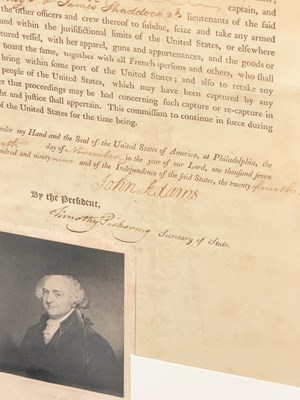 James Shaddock 2d lieutenants of the said
captain, and
the other officers and crew thereof to subdue, seize and take any armed
and within the jurisdictional limits of the United States, or elsewhere
tured vessel, with her apparel, guns and appurtenances, and the goods or
board the same, together with all French persons and others, who shall
bring within some port of the United States; and also to retake any
people of the United States, which may have been captured by any
that proceedings may be had concerning such capture or re-capture in
ght and justice shall appertain. This commission to continue in force during
of the United States for the time being.
nder my Hand and the Seal of the United States of America, at Philadelphia, the
day of November in the year of our Lord, one thousand seven
dred and ninety nine and of the Independence of the said States, the twenty fourth
John Adams
By the President,
Timothy Pickering Secretary of State.